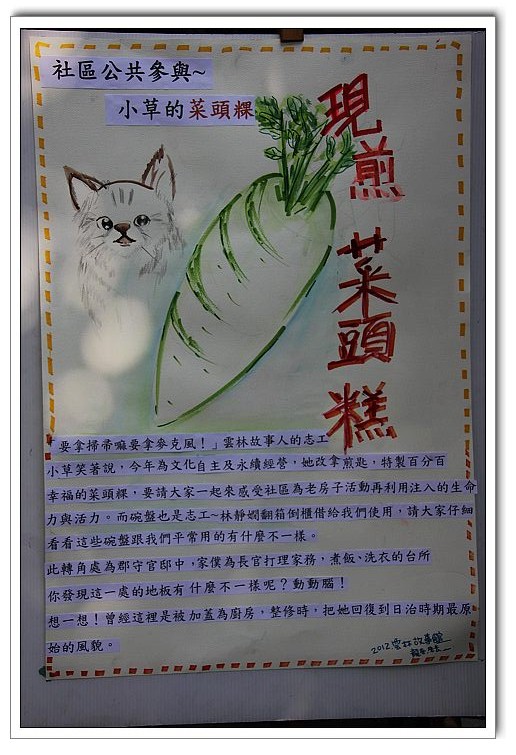 社區公共參與~
小草的菜頭粿
現煎 菜頭糕
「要拿掃帚嘛要拿麥克風！」雲林故事人的志工
小草笑著說，今年為文化自主及永續經營，她改拿煎匙，特製百分百
幸福的菜頭粿，要請大家一起來感受社區為老房子活動再利用注入的生命
力與活力。而碗盤也是志工~林靜嫻翻箱倒櫃借給我們使用，請大家仔細
看看這些碗盤跟我們平常用的有什麼不一樣。
此轉角處為郡守官邸中，家僕為長官打理家務，煮飯、洗衣的台所
你發現這一處的地板有什麼不一樣呢？動動腦！
想一想！曾經這裡是被加蓋為廚房，整修時，把她回復到日治時期最原
始的風貌。
2012雲林故事館